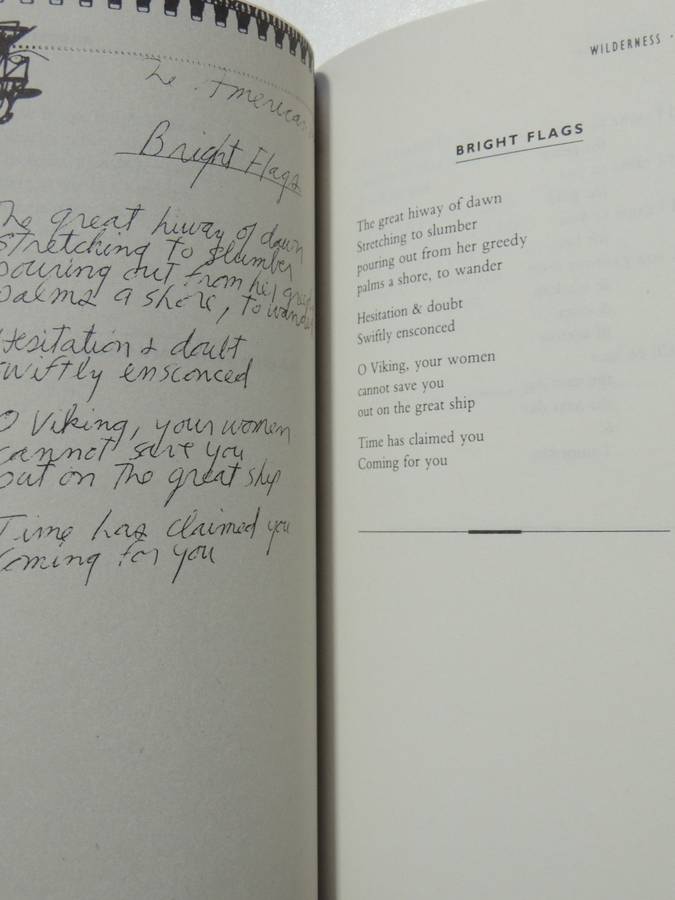 The American
Bright Flags
The great hiway of dawn
Stretching to slumber
pouring out from her greedy
palms a shore, to wander
Hesitation & doubt
swiftly ensconced
O Viking, your women
cannot save you
out on the great ship
Time has claimed you
Coming for you
WILDERNESS ·
BRIGHT FLAGS
The great hiway of dawn
Stretching to slumber
pouring out from her greedy
palms a shore, to wander
Hesitation & doubt
Swiftly ensconced
O Viking, your women
cannot save you
out on the great ship
Time has claimed you
Coming for you